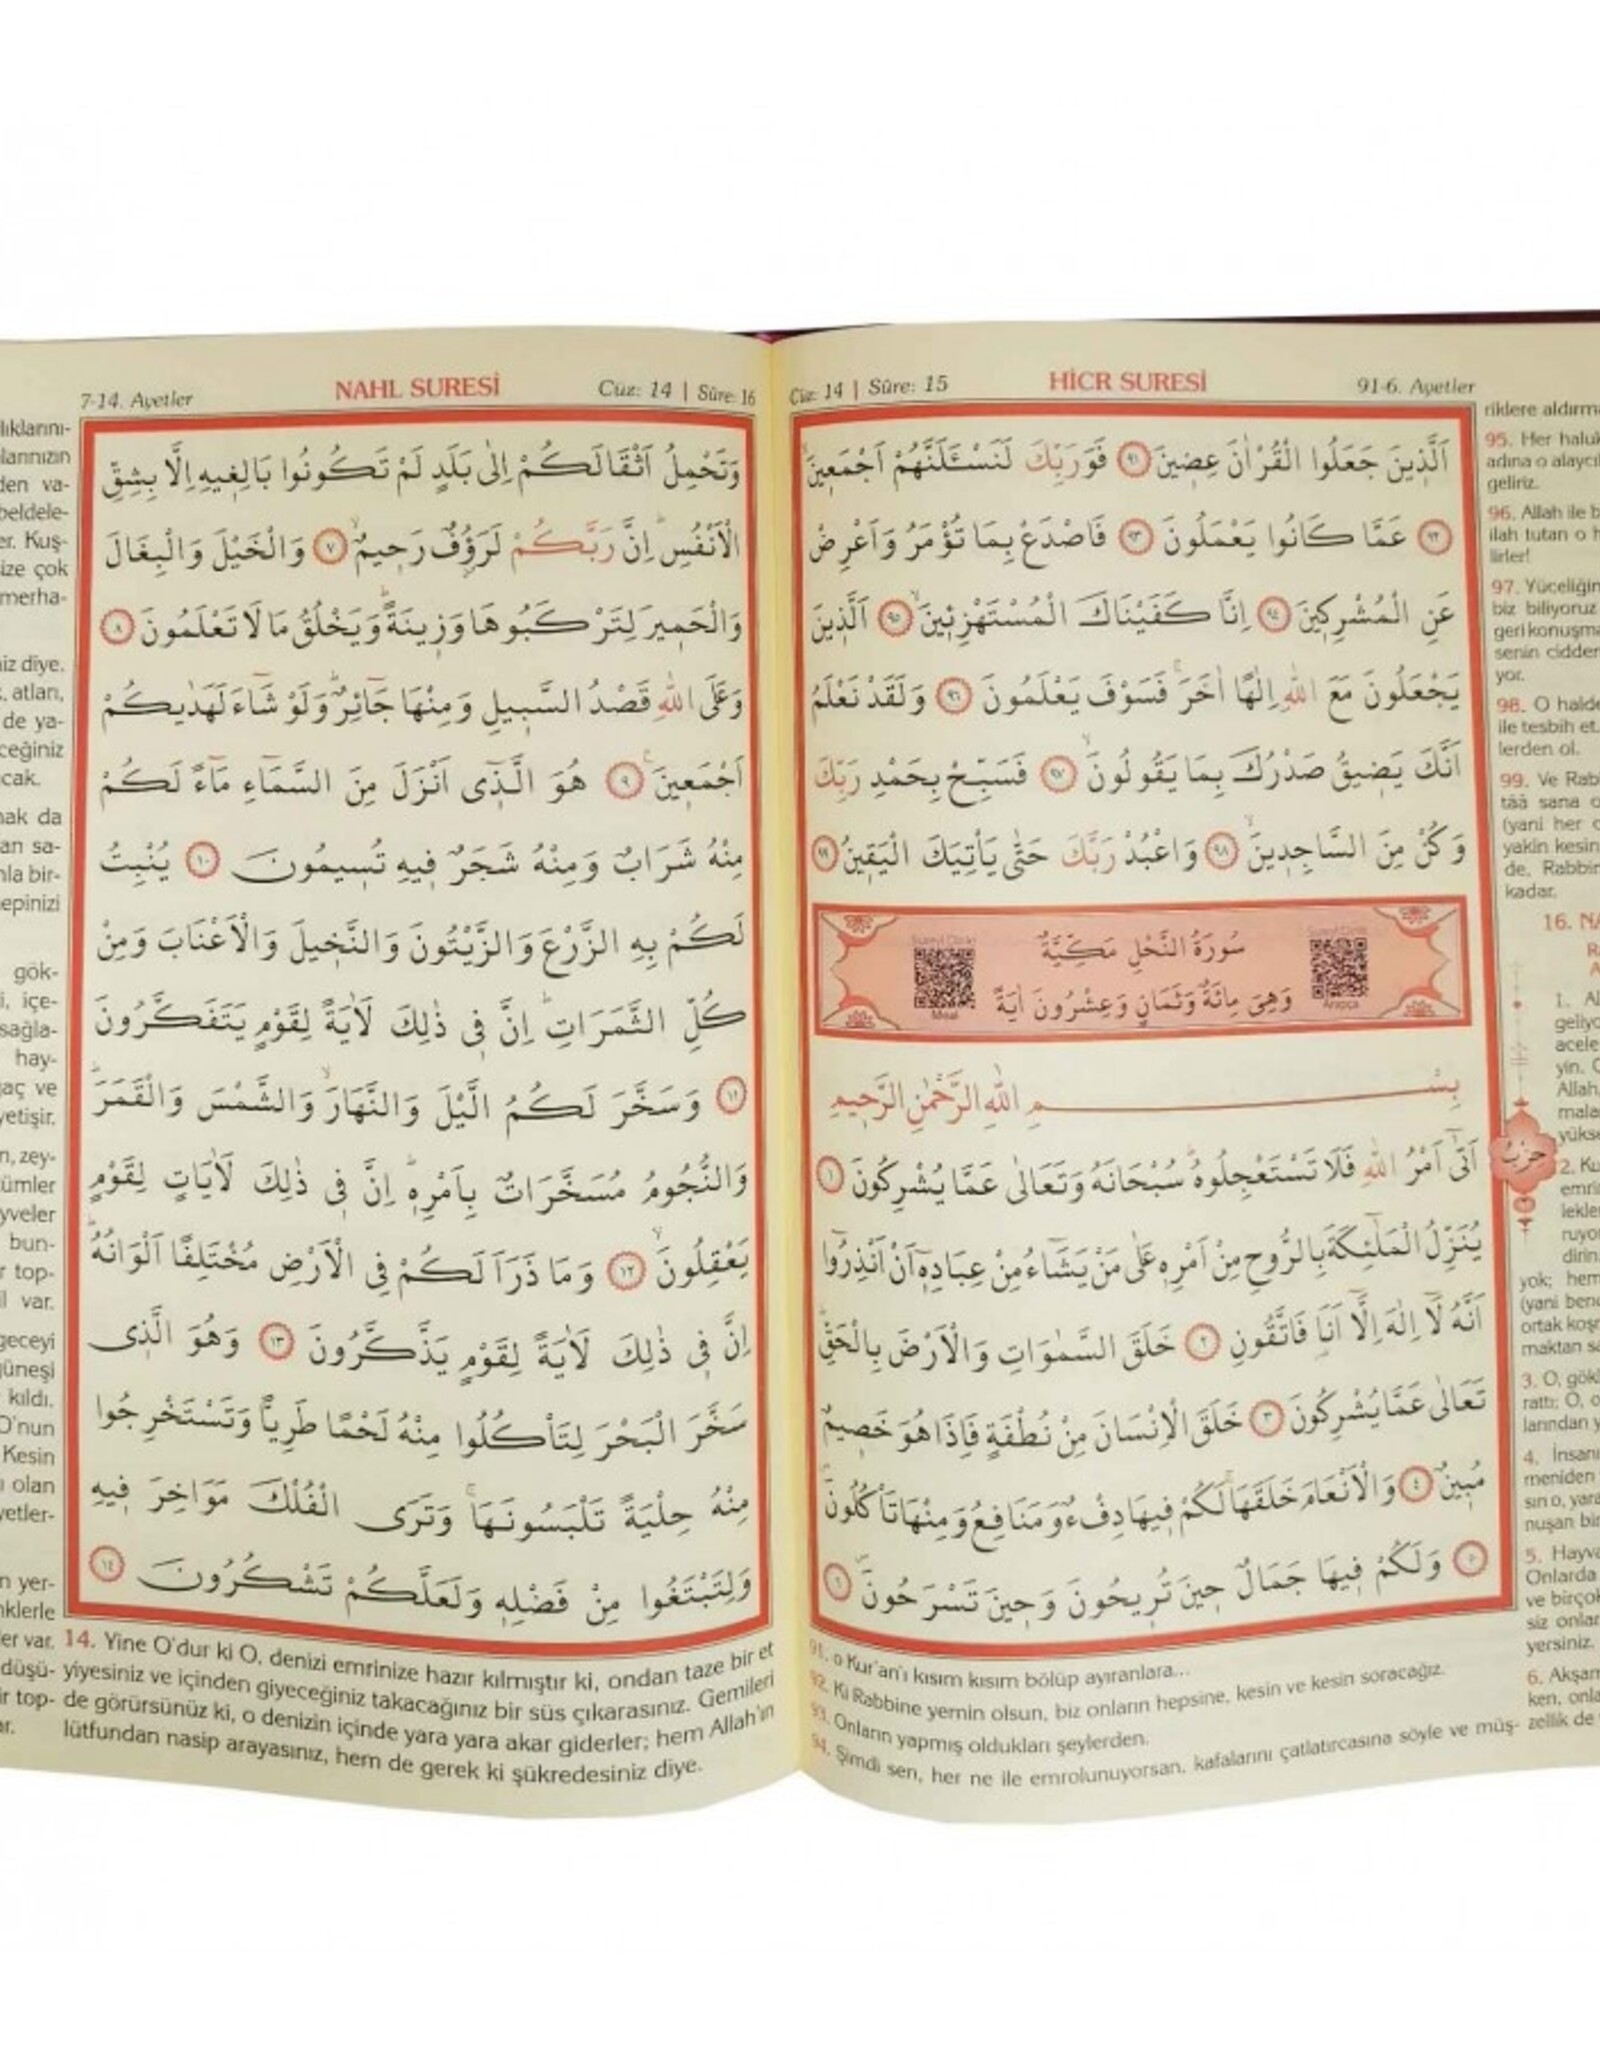 HİCR SURESİ
Cüz: 14 | Sûre: 15
91-6. Ayetler
اَلَّذِينَ جَعَلُوا الْقُرْاٰنَ عِضِينَ ﴿٩١﴾ فَوَرَبِّكَ لَنَسْـَٔلَنَّهُمْ اَجْمَعِينَۙ
﴿٩٢﴾ عَمَّا كَانُوا يَعْمَلُونَ ﴿٩٣﴾ فَاصْدَعْ بِمَا تُؤْمَرُ وَاَعْرِضْ
عَنِ الْمُشْرِكِينَ ﴿٩٤﴾ اِنَّا كَفَيْنَاكَ الْمُسْتَهْزِئِينَۙ ﴿٩٥﴾ اَلَّذِينَ
يَجْعَلُونَ مَعَ اللّٰهِ اِلٰهًا اٰخَرَۚ فَسَوْفَ يَعْلَمُونَ ﴿٩٦﴾ وَلَقَدْ نَعْلَمُ
اَنَّكَ يَضِيقُ صَدْرُكَ بِمَا يَقُولُونَۙ ﴿٩٧﴾ فَسَبِّحْ بِحَمْدِ رَبِّكَ
وَكُنْ مِنَ السَّاجِدِينَۙ ﴿٩٨﴾ وَاعْبُدْ رَبَّكَ حَتّٰى يَأْتِيَكَ الْيَقِينُ ﴿٩٩﴾
سُورَةُ النَّحْلِ مَكِّيَّةٌ
وَهِىَ مِائَةٌ وَثَمَانٍ وَعِشْرُونَ اٰيَةً
Meal
بِسْمِ اللّٰهِ الرَّحْمٰنِ الرَّحِيمِ
اَتٰٓى اَمْرُ اللّٰهِ فَلَا تَسْتَعْجِلُوهُۜ سُبْحَانَهُ وَتَعَالٰى عَمَّا يُشْرِكُونَ ﴿١﴾
يُنَزِّلُ الْمَلٰٓئِكَةَ بِالرُّوحِ مِنْ اَمْرِهِ عَلٰى مَنْ يَشَٓاءُ مِنْ عِبَادِهِٓ اَنْ اَنْذِرُٓوا
اَنَّهُ لَٓا اِلٰهَ اِلَّٓا اَنَا۬ فَاتَّقُونِ ﴿٢﴾ خَلَقَ السَّمٰوَاتِ وَالْاَرْضَ بِالْحَقِّۜ
تَعَالٰى عَمَّا يُشْرِكُونَ ﴿٣﴾ خَلَقَ الْاِنْسَانَ مِنْ نُطْفَةٍ فَاِذَا هُوَ خَصِيمٌ
مُبِينٌ ﴿٤﴾ وَالْاَنْعَامَ خَلَقَهَاۚ لَكُمْ فِيهَا دِفْءٌ وَمَنَافِعُ وَمِنْهَا تَأْكُلُونَۖ
﴿٥﴾ وَلَكُمْ فِيهَا جَمَالٌ حِينَ تُرِيحُونَ وَحِينَ تَسْرَحُونَۖ ﴿٦﴾
حزب
91. o Kur'an'ı kısım kısım bölüp ayıranlara...
92. Ki Rabbine yemin olsun, biz onların hepsine, kesin ve kesin soracağız.
93. Onların yapmış oldukları şeylerden.
94. Şimdi sen, her ne ile emrolunuyorsan, kafalarını çatlatırcasına söyle ve müş-
95. Her
adına o
geliriz.
96. Allah ile
ilah tutan o
lirler!
97. Yüceliğin
biz biliyoruz
geri
senin
yor.
98. O halde
ile tesbih et.
lerden ol.
99. Ve
sana
(yani her
yakin
de,
kadar.
16.
1.
yin.
Allah,
2.
yok;
(yani
3. O,
O,
4.
meniden
5.
Onlarda
siz
yersiniz.
6.
ken,
zellik de
NAHL SURESİ
7-14. Ayetler
Cüz: 14 | Sûre: 16
وَتَحْمِلُ اَثْقَالَكُمْ اِلٰى بَلَدٍ لَمْ تَكُونُوا بَالِغِيهِ اِلَّا بِشِقِّ
الْاَنْفُسِۜ اِنَّ رَبَّكُمْ لَرَؤُ۫فٌ رَحِيمٌۙ ﴿٧﴾ وَالْخَيْلَ وَالْبِغَالَ
وَالْحَمِيرَ لِتَرْكَبُوهَا وَزِينَةًۜ وَيَخْلُقُ مَا لَا تَعْلَمُونَ ﴿٨﴾
وَعَلَى اللّٰهِ قَصْدُ السَّبِيلِ وَمِنْهَا جَٓائِرٌۜ وَلَوْ شَٓاءَ لَهَدٰيكُمْ
اَجْمَعِينَ۟ ﴿٩﴾ هُوَ الَّذِٓى اَنْزَلَ مِنَ السَّمَٓاءِ مَٓاءً لَكُمْ
مِنْهُ شَرَابٌ وَمِنْهُ شَجَرٌ فِيهِ تُسِيمُونَ ﴿١٠﴾ يُنْبِتُ
لَكُمْ بِهِ الزَّرْعَ وَالزَّيْتُونَ وَالنَّخِيلَ وَالْاَعْنَابَ وَمِنْ
كُلِّ الثَّمَرَاتِۜ اِنَّ فِى ذٰلِكَ لَاٰيَةً لِقَوْمٍ يَتَفَكَّرُونَ
﴿١١﴾ وَسَخَّرَ لَكُمُ الَّيْلَ وَالنَّهَارَۙ وَالشَّمْسَ وَالْقَمَرَۜ
وَالنُّجُومُ مُسَخَّرَاتٌ بِاَمْرِهِۜ اِنَّ فِى ذٰلِكَ لَاٰيَاتٍ لِقَوْمٍ
يَعْقِلُونَۙ ﴿١٢﴾ وَمَا ذَرَاَ لَكُمْ فِى الْاَرْضِ مُخْتَلِفًا اَلْوَانُهُۜ
اِنَّ فِى ذٰلِكَ لَاٰيَةً لِقَوْمٍ يَذَّكَّرُونَ ﴿١٣﴾ وَهُوَ الَّذِى
سَخَّرَ الْبَحْرَ لِتَأْكُلُوا مِنْهُ لَحْمًا طَرِيًّا وَتَسْتَخْرِجُوا
مِنْهُ حِلْيَةً تَلْبَسُونَهَاۚ وَتَرَى الْفُلْكَ مَوَاخِرَ فِيهِ
وَلِتَبْتَغُوا مِنْ فَضْلِهِ وَلَعَلَّكُمْ تَشْكُرُونَ ﴿١٤﴾
14. Yine O'dur ki O, denizi emrinize hazır kılmıştır ki, ondan taze bir et
yiyesiniz ve içinden giyeceğiniz takacağınız bir süs çıkarasınız. Gemileri
de görürsünüz ki, o denizin içinde yara yara akar giderler; hem Allah'ın
lütfundan nasip arayasınız, hem de gerek ki şükredesiniz diye.